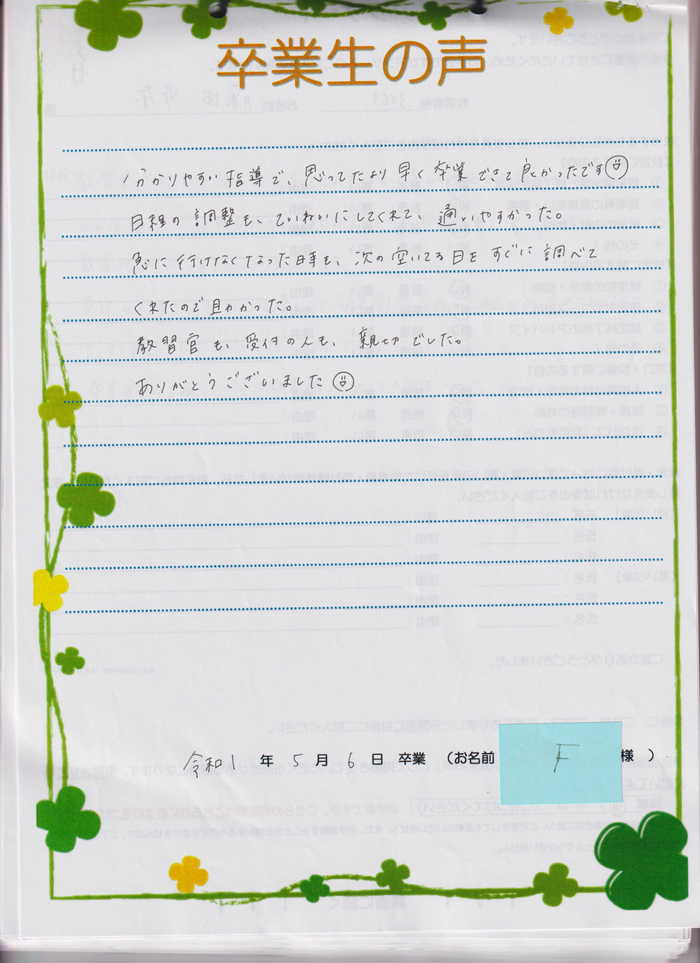 卒業生の声
分かりやすい指導で、思ってたより早く卒業できて良かったです
日程の調整も、ていねいにしてくれて、通いやすかった。
急に行けなくなった時も、次の空いてる日をすぐに調べて
くれたので助かった。
教習官も、受付の人も、親切でした。
ありがとうございました
令和1年5月6日 卒業 (お名前 F 様)